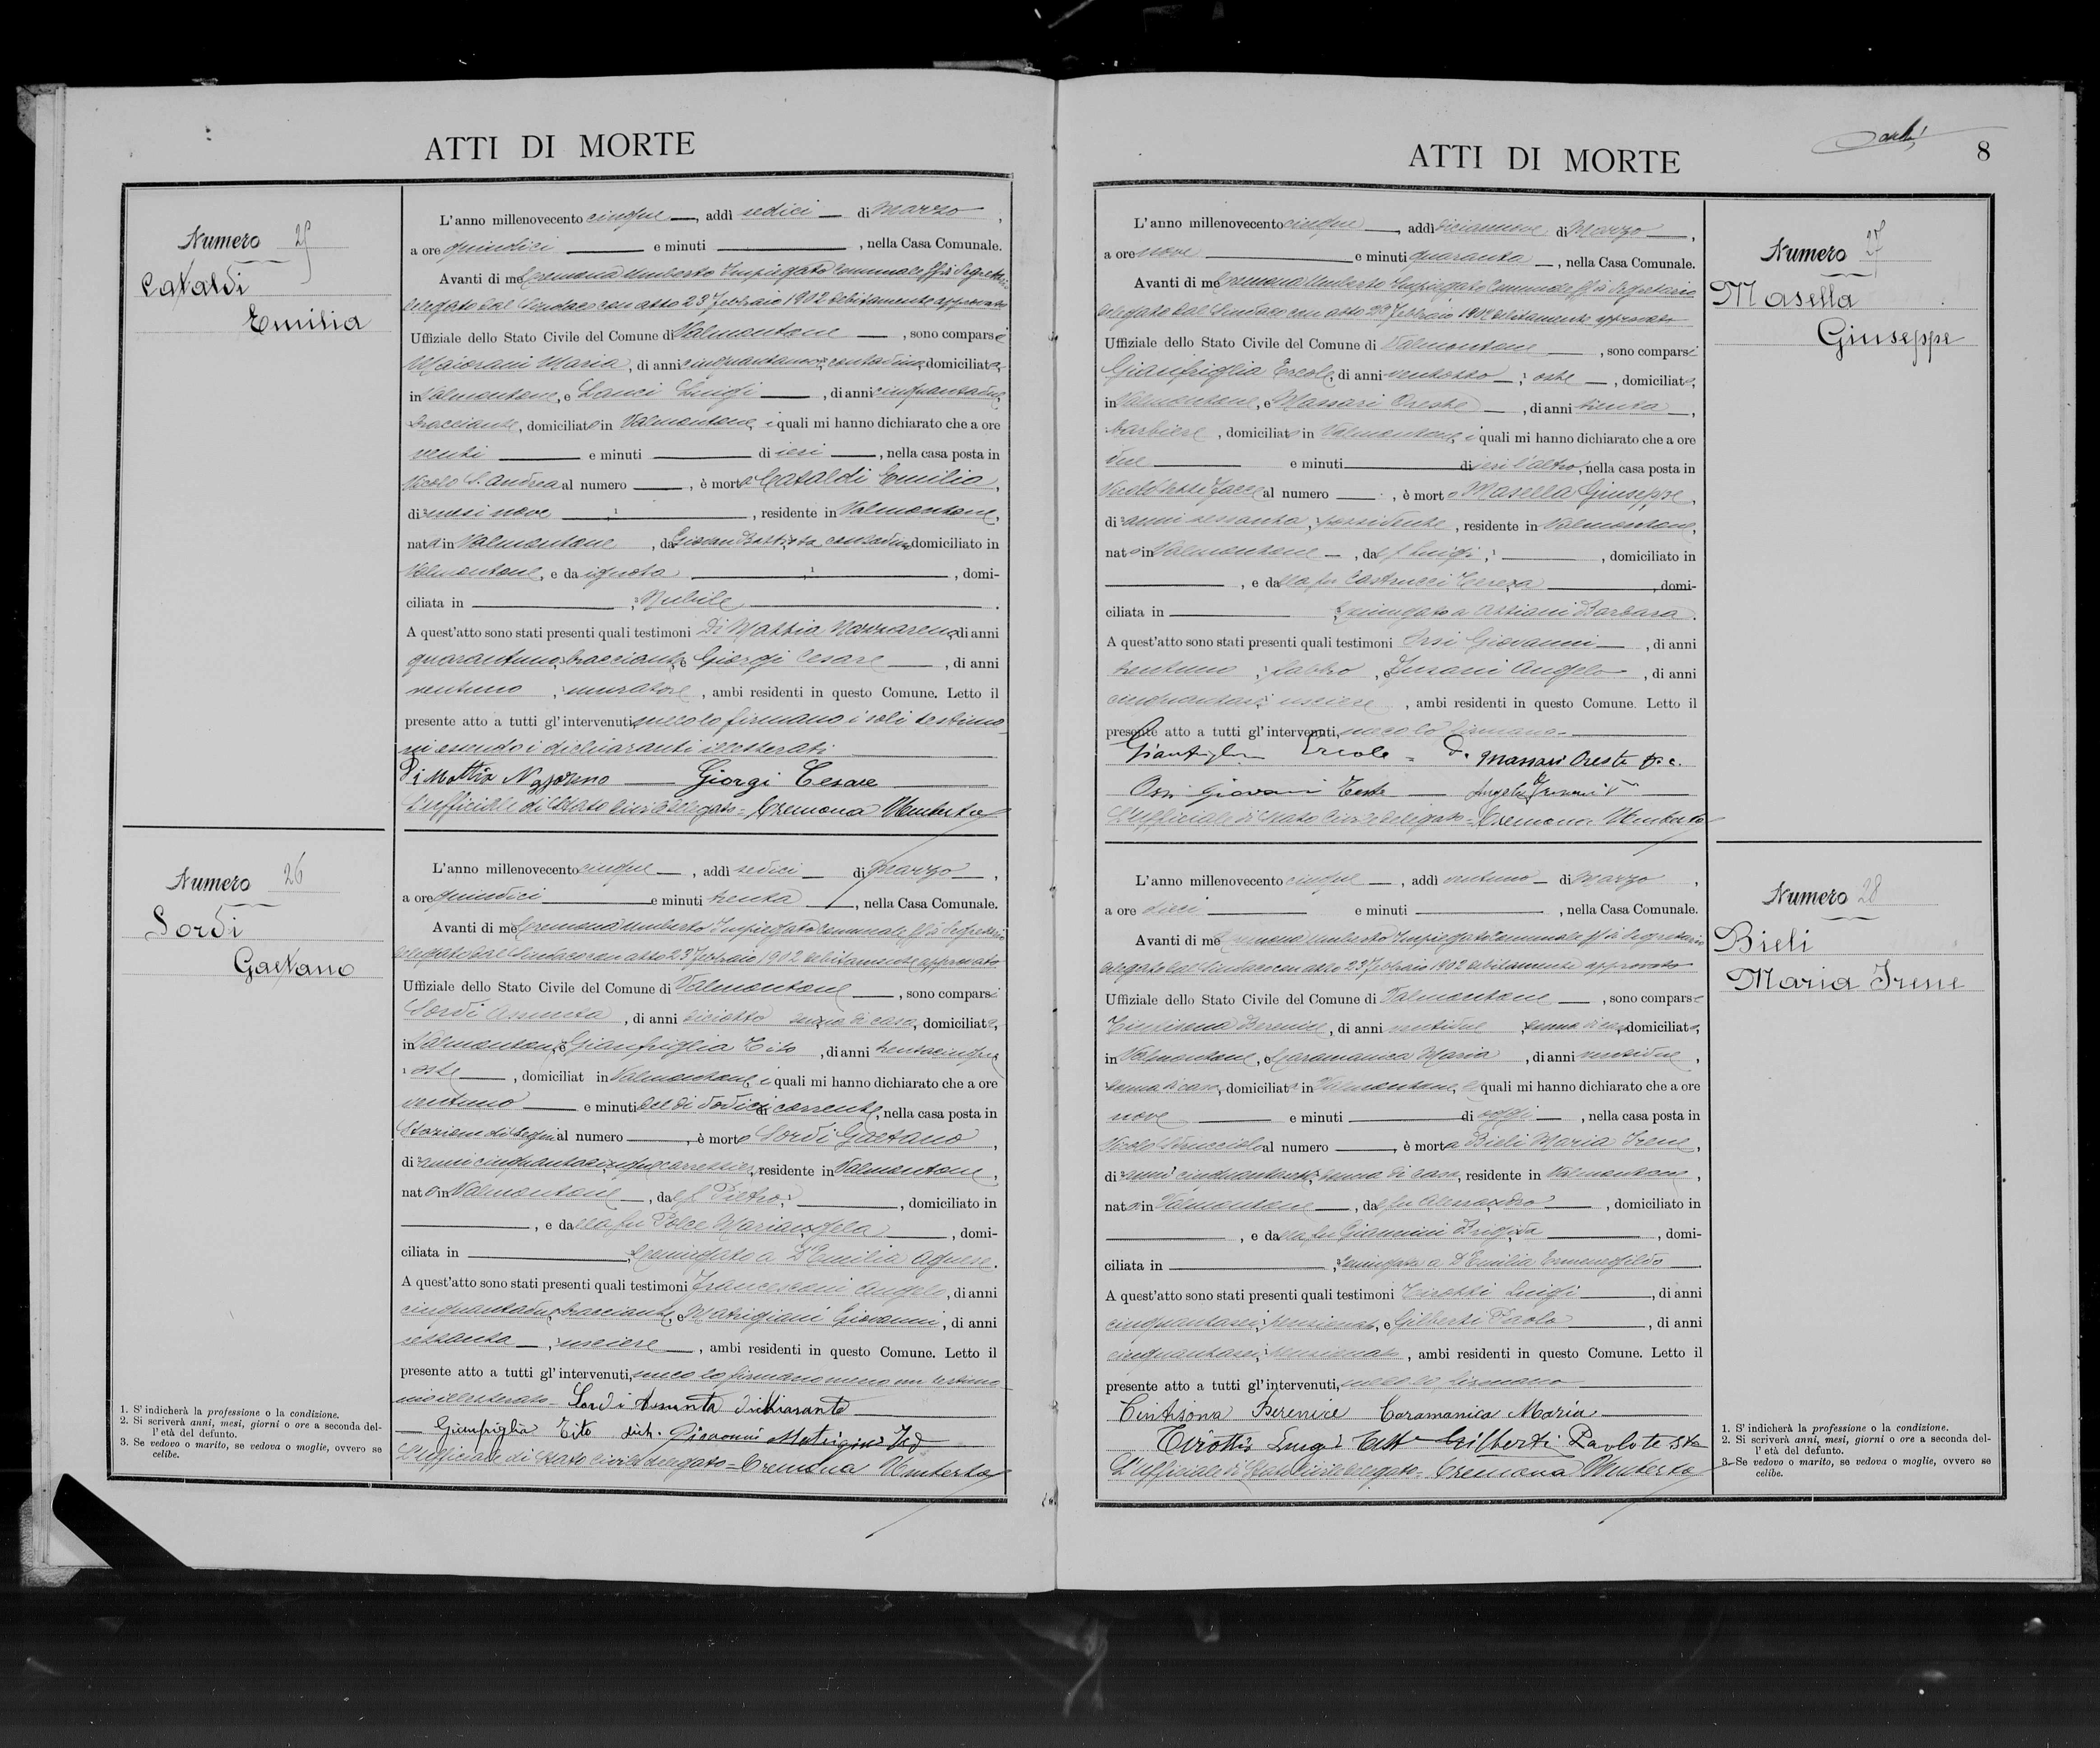 ATTI DI MORTE
Numero 25
Cataldi
Emilia
L'anno millenovecento cinque, addì sedici di Marzo,
a ore quindici e minuti , nella Casa Comunale.
Avanti di me Cremona Umberto Impiegato Comunale ff di Segretario
delegato dal Sindaco con atto 23 Febbraio 1902 debitamente approvato
Uffiziale dello Stato Civile del Comune di Valmontone, sono comparsi
Maiorani Maria, di anni cinquantanove, contadina, domiciliata
in Valmontone, e Lanci Luigi, di anni cinquantadue,
bracciante, domiciliato in Valmontone, i quali mi hanno dichiarato che a ore
venti e minuti di ieri, nella casa posta in
Vicolo S. Andrea al numero , è morta Cataldi Emilia,
di mesi nove , residente in Valmontone,
nata in Valmontone, da Giovan Battista, contadino, domiciliato in
Valmontone, e da ignota , domi-
ciliata in ; Nubile.
A quest'atto sono stati presenti quali testimoni Di Mattia Nazzareno, di anni
quarantuno, bracciante, e Giorgi Cesare, di anni
ventuno, muratore, ambi residenti in questo Comune. Letto il
presente atto a tutti gl'intervenuti, meco lo firmano i soli testimo
ni essendo i dichiaranti illetterati
Di Mattia Nazzareno Giorgi Cesare
L'ufficiale di Stato Civile delegato = Cremona Umberto
Numero 26
Sordi
Gaetano
L'anno millenovecento cinque, addì sedici di Marzo,
a ore quindici e minuti trenta, nella Casa Comunale.
Avanti di me Cremona Umberto Impiegato Comunale ff di Segretario
delegato dal Sindaco con atto 23 Febbraio 1902 debitamente approvato
Uffiziale dello Stato Civile del Comune di Valmontone, sono comparsi
Sordi Assunta, di anni diciotto di casa, domiciliata,
in Valmontone, e Gianfriglia Tito, di anni trentacinque
oste, domiciliat in Valmontone, i quali mi hanno dichiarato che a ore
ventuno e minuti del dì dodici corrente, nella casa posta in
Stazione di Segni al numero , è morto Sordi Gaetano,
di anni cinquantacinque, carrettiere, residente in Valmontone,
nato in Valmontone, dal f. Pietro; , domiciliato in
, e dalla fu Polce Mariangela , domi-
ciliata in , coniugato a D'Emilia Agnese.
A quest'atto sono stati presenti quali testimoni Francesconi Angelo, di anni
cinquantadue, bracciante, e Matrigiani Giovanni, di anni
sessanta, usciere, ambi residenti in questo Comune. Letto il
presente atto a tutti gl'intervenuti, meco lo firmano meno un testimo
nio illetterato - Sordi Assunta dichiarante
Gianfriglia Tito dich. Giovanni Matrigiani
L'ufficiale di Stato Civile delegato = Cremona Umberto
1. S'indicherà la professione o la condizione.
2. Si scriverà anni, mesi, giorni o ore a seconda del-
l'età del defunto.
3. Se vedovo o marito, se vedova o moglie, ovvero se
celibe.
8
ATTI DI MORTE
Numero 27
Masella
Giuseppe
L'anno millenovecento cinque, addì diciannove di Marzo,
a ore nove e minuti quaranta, nella Casa Comunale.
Avanti di me Cremona Umberto Impiegato Comunale ff di Segretario
delegato dal Sindaco con atto 23 Febbraio 1902 debitamente approvato
Uffiziale dello Stato Civile del Comune di Valmontone, sono comparsi
Gianfriglia Ercole, di anni ventotto; oste, domiciliato,
in Valmontone, e Massari Oreste, di anni trenta,
barbiere, domiciliato in Valmontone, i quali mi hanno dichiarato che a ore
due e minuti di ieri l'altro, nella casa posta in
Vicolo al numero , è morto Masella Giuseppe,
di anni sessanta, possidente, residente in Valmontone,
nato in Valmontone, dal f. Luigi; , domiciliato in
, e dalla fu Castrucci Tereza , domi-
ciliata in coniugato a Attiani Barbara.
A quest'atto sono stati presenti quali testimoni Orsi Giovanni, di anni
trentuno; fabbro, e Fusani Angelo, di anni
cinquantasei usciere, ambi residenti in questo Comune. Letto il
presente atto a tutti gl'intervenuti, meco lo firmano.
Gianfriglia Ercole = D. Massari Oreste
Orsi Giovanni Teste Angelo Fusani
L'Ufficiale di Stato Civile delegato = Cremona Umberto
Numero 28
Bieli
Maria Irene
L'anno millenovecento cinque, addì ventuno di Marzo,
a ore dieci e minuti , nella Casa Comunale.
Avanti di me Cremona Umberto Impiegato Comunale ff di Segretario
delegato dal Sindaco con atto 23 Febbraio 1902 debitamente approvato
Uffiziale dello Stato Civile del Comune di Valmontone, sono comparse
Cintisona Berenice, di anni ventidue donna di casa, domiciliata,
in Valmontone, e Caramanica Maria, di anni ventidue,
donna di casa, domiciliata in Valmontone, le quali mi hanno dichiarato che a ore
nove e minuti di oggi, nella casa posta in
Vicolo Sdrucciolo al numero , è morta Bieli Maria Irene,
di anni donna di casa, residente in Valmontone,
nata in Valmontone, dal fu Alessandro , domiciliato in
, e dalla fu Giannini Brigida , domi-
ciliata in , coniugata a D'Emilia Ermenegildo.
A quest'atto sono stati presenti quali testimoni Tirotti Luigi, di anni
cinquantasei; pensionato, e Gilberti Paolo, di anni
cinquantasei, pensionato, ambi residenti in questo Comune. Letto il
presente atto a tutti gl'intervenuti, meco lo firmano
Cintisona Berenice Caramanica Maria
Tirotti Luigi Gilberti Paolo
L'Ufficiale di Stato Civile delegato = Cremona Umberto
1. S'indicherà la professione o la condizione.
2. Si scriverà anni, mesi, giorni o ore a seconda del-
l'età del defunto.
3. Se vedovo o marito, se vedova o moglie, ovvero se
celibe.